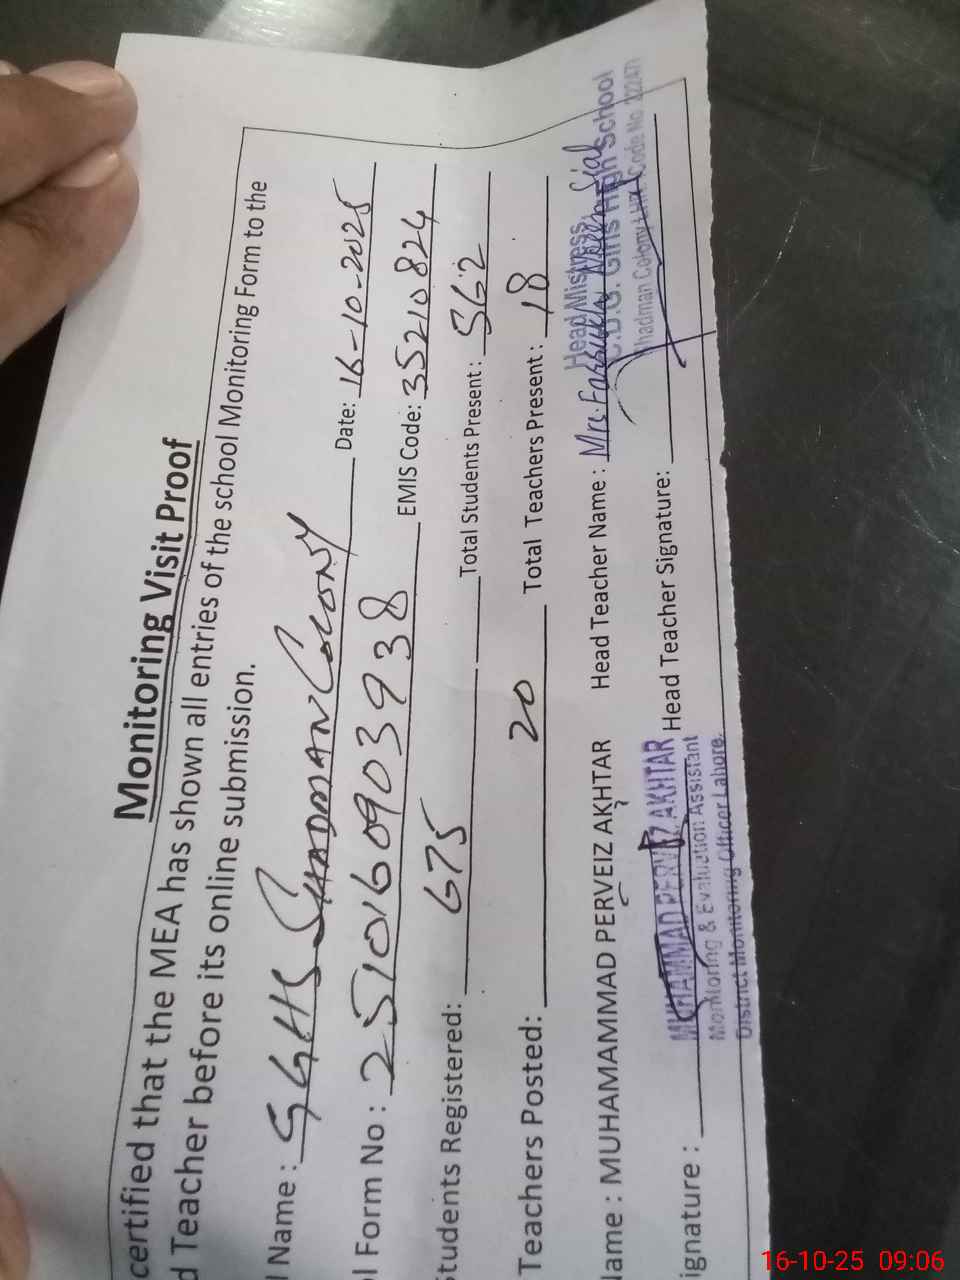 Monitoring Visit Proof
certified that the MEA has shown all entries of the school Monitoring Form to the
d Teacher before its online submission.
l Name : GGHS SHADMAN COLONY Date: 16-10-2025
ol Form No : 2510160903938 EMIS Code: 35210824
Students Registered: 675 Total Students Present : 562
Teachers Posted: 20 Total Teachers Present : 18
Name : MUHAMAMMAD PERVEIZ AKHTAR Head Teacher Name : Mrs. Farrukh Noreen Sial
Head Mistress
C.D.G. Girls High School
Shadman Colony LHR. Code No.
ignature : Head Teacher Signature:
MUHAMMAD PERVEZ AKHTAR
Monitoring & Evaluation Assistant
District Monitoring Officer Lahore.
16-10-25 09:06